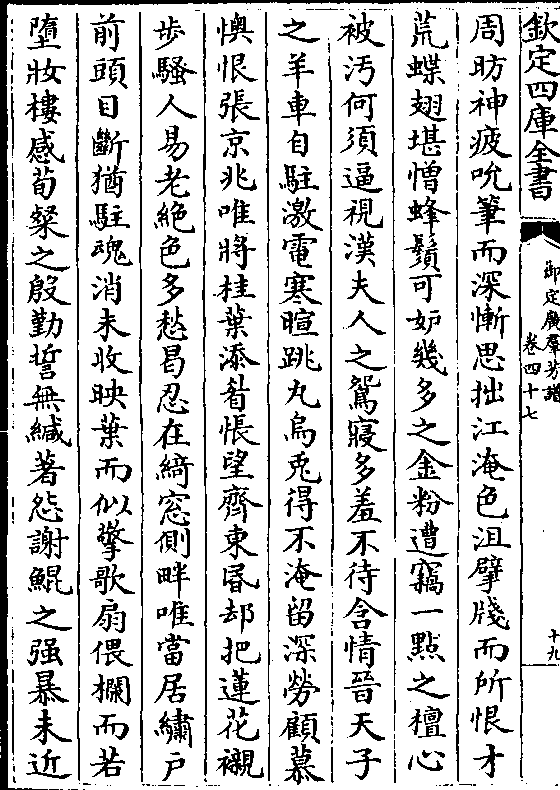 欽定四庫全書
御定廣羣芳譜
卷四十七
十九
周昉神疲吮筆而深慚思拙江淹色沮擘牋而所恨才
荒蝶翅堪憎蜂鬚可妒幾多之金粉遭竊一點之檀心
被汚何須逼視漢夫人之鴛寢多羞不待含情晉天子
之羊車自駐激電寒暄跳丸烏兎得不淹留深勞顧慕
懊恨張京兆唯將桂葉添眉悵望齊東昏却把蓮花襯
步騷人易老絶色多愁曷忍在綺窓側畔唯當居繡戸
前頭目斷猶駐魂消未收映葉而似擎歌扇偎欄而若
墮妝樓感荀粲之殷勤誓無緘著怨謝鯤之强暴未近